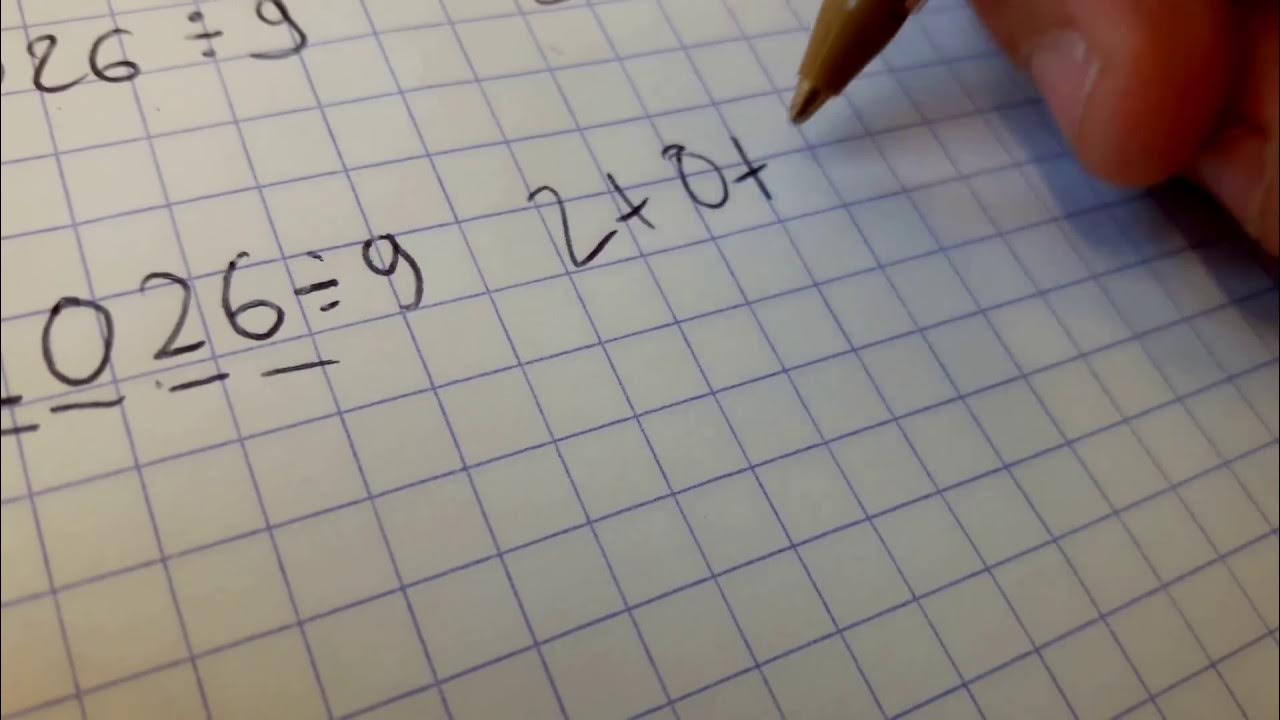 26 ÷ 9
2+0+
026 ÷ 9